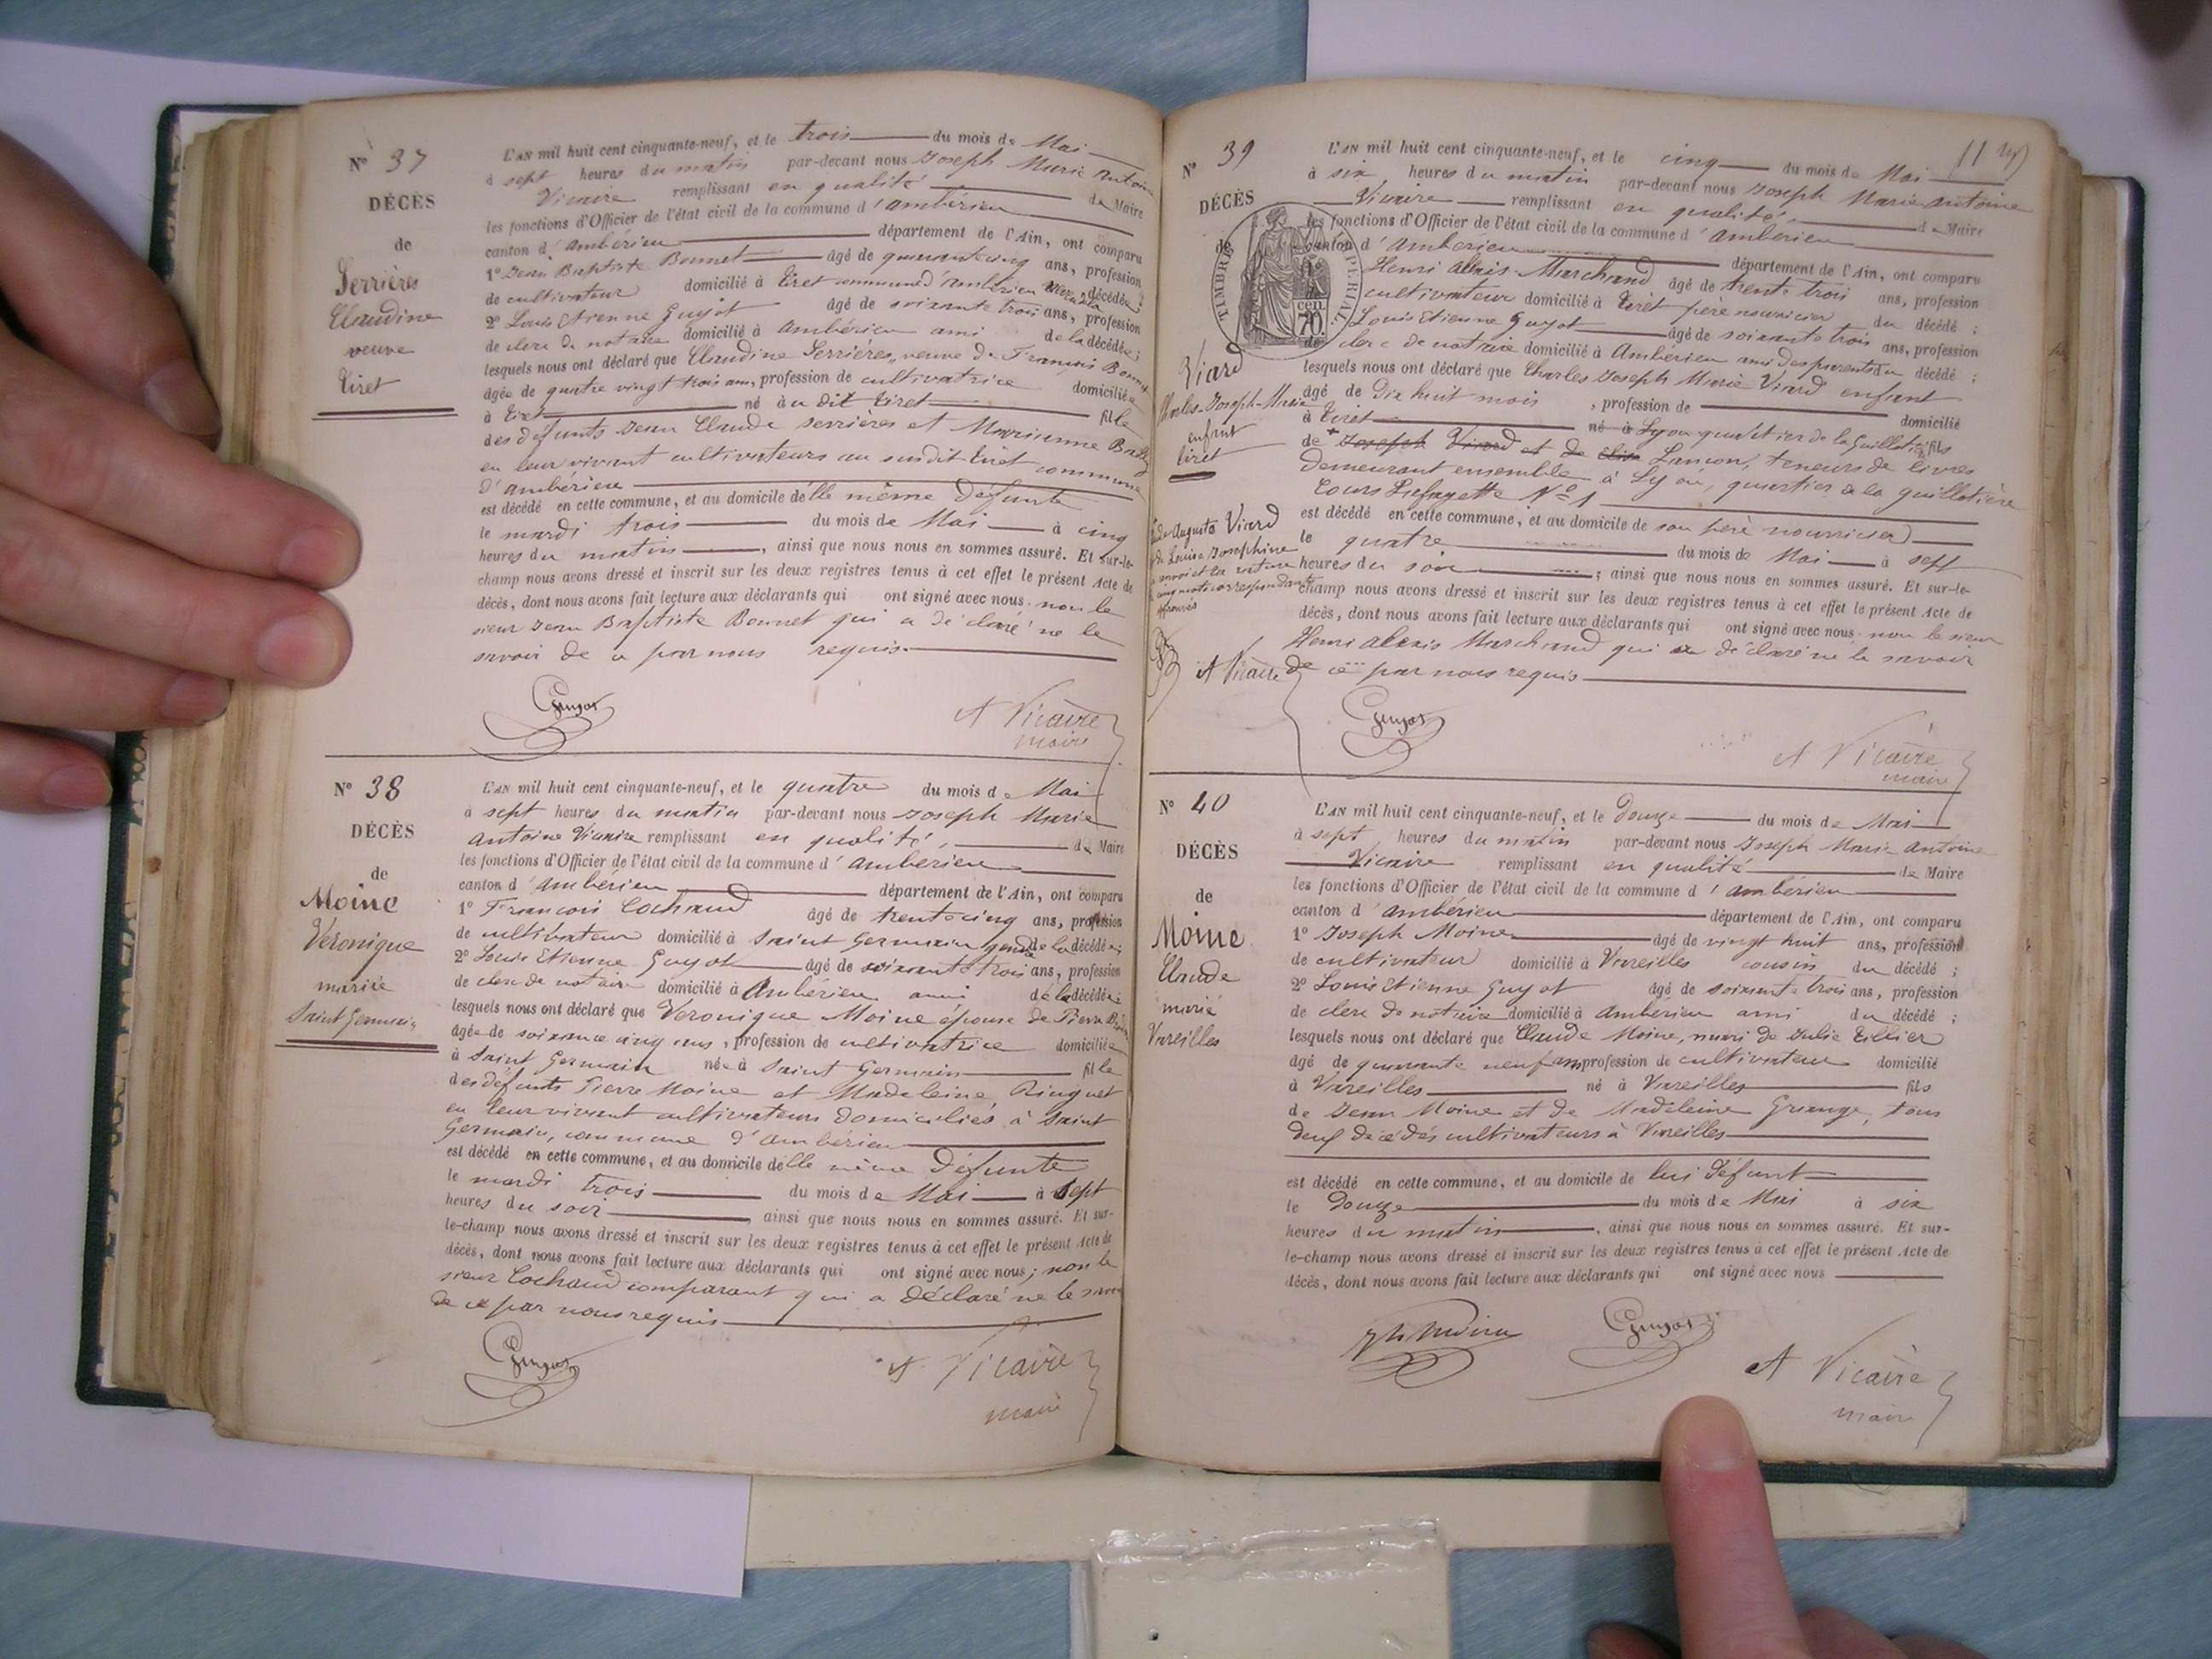 N° 37
DÉCÈS
de
Serrières
Claudine
veuve
Tiret
L'AN mil huit cent cinquante-neuf, et le trois du mois de Mai
à sept heures du matin par-devant nous Joseph Marie Antoine
Vicaire remplissant en qualité de Maire
les fonctions d'Officier de l'état civil de la commune d'ambérieu
canton d'ambérieu département de l'Ain, ont comparu
1° Jean Baptiste Bonnet âgé de quarante cinq ans, profession
de cultivateur domicilié à Tiret commune d'ambérieu décédée;
2° Louis Etienne Guyot âgé de soixante trois ans, profession
de clerc de notaire domicilié à Ambérieu ami de la décédée;
lesquels nous ont déclaré que Claudine Serrières, veuve de François Bonnet
âgée de quatre vingt trois ans, profession de cultivatrice domiciliée
à Tiret né à u dit Tiret fille
des défunts Jean Claude Serrières et Marianne
en leur vivant cultivateurs au susdit Tiret commune
d'ambérieu
est décédé en cette commune, et au domicile d'elle même défunte
le mardi trois du mois de Mai à cinq
heures du matin, ainsi que nous nous en sommes assuré. Et sur-le-
champ nous avons dressé et inscrit sur les deux registres tenus à cet effet le présent Acte de
décès, dont nous avons fait lecture aux déclarants qui ont signé avec nous. non le
sieur Jean Baptiste Bonnet qui a déclaré ne le
savoir de ce par nous requis.
Guyot
A Vicaire
maire
N° 38
DÉCÈS
de
Moine
Veronique
mariée
Saint Germain
L'AN mil huit cent cinquante-neuf, et le quatre du mois de Mai
à sept heures du matin par-devant nous Joseph Marie
Antoine Vicaire remplissant en qualité de Maire
les fonctions d'Officier de l'état civil de la commune d'ambérieu
canton d'ambérieu département de l'Ain, ont comparu
1° François Cochaud âgé de trente cinq ans, profession
de cultivateur domicilié à Saint Germain gendre de la décédée;
2° Louis Etienne Guyot âgé de soixante trois ans, profession
de clerc de notaire domicilié à Ambérieu ami de la décédée;
lesquels nous ont déclaré que Veronique Moine épouse de Pierre
âgée de soixante cinq ans, profession de cultivatrice domiciliée
à Saint Germain née à Saint Germain fille
des défunts Pierre Moine et Madeleine Ringuet
en leur vivant cultivateurs domiciliés à Saint
Germain, commune d'ambérieu
est décédé en cette commune, et au domicile d'elle même défunte
le mardi trois du mois de Mai à sept
heures du soir, ainsi que nous nous en sommes assuré. Et sur-
le-champ nous avons dressé et inscrit sur les deux registres tenus à cet effet le présent Acte de
décès, dont nous avons fait lecture aux déclarants qui ont signé avec nous; non le
sieur Cochaud comparant qui a déclaré ne le savoir
de ce par nous requis
Guyot
A Vicaire
maire
N° 39
DÉCÈS
de
Viard
Charles-Joseph-Marie
enfant
Tiret
TIMBRE IMPÉRIAL
70 cen.
L'AN mil huit cent cinquante-neuf, et le cinq du mois de Mai
à six heures du matin par-devant nous Joseph Marie Antoine
Vicaire remplissant en qualité de Maire
les fonctions d'Officier de l'état civil de la commune d'ambérieu
canton d'ambérieu département de l'Ain, ont comparu
Henri Alexis Marchand âgé de trente trois ans, profession
cultivateur domicilié à Tiret père nourricier du décédé;
Louis Etienne Guyot âgé de soixante trois ans, profession
de clerc de notaire domicilié à Ambérieu ami des parents du décédé;
lesquels nous ont déclaré que Charles Joseph Marie Viard enfant
âgé de Dix huit mois, profession de domicilié
à Tiret né à Lyon quartier de la Guillotière fils
de Joseph Viard et de Elisa Lançon, teneurs de livres
demeurant ensemble à Lyon, quartier de la guillotière
Cours Lafayette N° 1
est décédé en cette commune, et au domicile de son père nourricier
le quatre du mois de Mai à sept
heures du soir; ainsi que nous nous en sommes assuré. Et sur-le-
champ nous avons dressé et inscrit sur les deux registres tenus à cet effet le présent Acte de
décès, dont nous avons fait lecture aux déclarants qui ont signé avec nous. non le sieur
Henri Alexis Marchand qui a déclaré ne le savoir
de ce par nous requis
Auguste Viard
de Louise Josephine
renvoi et la rature
cinq mots correspondants
approuvés
A Vicaire
Guyot
A Vicaire
maire
N° 40
DÉCÈS
de
Moine
Claude
marié
Vareilles
L'AN mil huit cent cinquante-neuf, et le douze du mois de Mai
à sept heures du matin par-devant nous Joseph Marie Antoine
Vicaire remplissant en qualité de Maire
les fonctions d'Officier de l'état civil de la commune d'ambérieu
canton d'ambérieu département de l'Ain, ont comparu
1° Joseph Moine âgé de vingt huit ans, profession
de cultivateur domicilié à Vareilles cousin du décédé;
2° Louis Etienne Guyot âgé de soixante trois ans, profession
de clerc de notaire domicilié à Ambérieu ami du décédé;
lesquels nous ont déclaré que Claude Moine, mari de Julie Tillier
âgé de quarante neuf ans profession de cultivateur domicilié
à Vareilles né à Vareilles fils
de Jean Moine et de Madeleine Grange, tous
deux décédés cultivateurs à Vareilles
est décédé en cette commune, et au domicile de lui défunt
le douze du mois de Mai à six
heures du matin, ainsi que nous nous en sommes assuré. Et sur-
le-champ nous avons dressé et inscrit sur les deux registres tenus à cet effet le présent Acte de
décès, dont nous avons fait lecture aux déclarants qui ont signé avec nous
Guyot
A Vicaire
maire